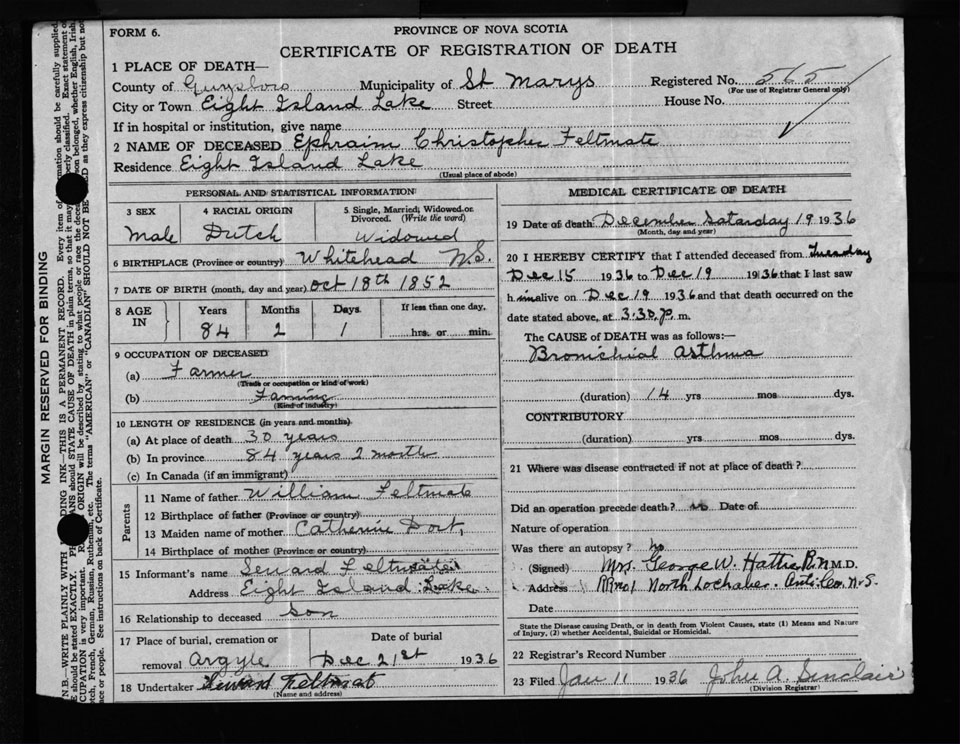 FORM 6.
PROVINCE OF NOVA SCOTIA
CERTIFICATE OF REGISTRATION OF DEATH
1 PLACE OF DEATH—
County of Guysboro Municipality of St Marys Registered No. 565
(For use of Registrar General only)
City or Town Eight Island Lake Street House No.
If in hospital or institution, give name
2 NAME OF DECEASED Ephraim Christopher Feltmate
Residence Eight Island Lake
(Usual place of abode)
PERSONAL AND STATISTICAL INFORMATION
3 SEX 4 RACIAL ORIGIN 5 Single, Married, Widowed or Divorced. (Write the word)
Male Dutch Widowed
6 BIRTHPLACE (Province or country) Whitehead N.S.
7 DATE OF BIRTH (month, day and year) Oct 18th 1852
8 AGE IN Years Months Days If less than one day,
84 2 1 hrs. or min.
9 OCCUPATION OF DECEASED
(a) Farmer
(Trade or occupation or kind of work)
(b) Faming
(Kind of industry)
10 LENGTH OF RESIDENCE (in years and months)
(a) At place of death 30 years
(b) In province 84 years 2 month
(c) In Canada (if an immigrant)
Parents
11 Name of father William Feltmate
12 Birthplace of father (Province or country)
13 Maiden name of mother Catherine Dort,
14 Birthplace of mother (Province or country)
15 Informant's name Seward Feltmate
Address Eight Island Lake
16 Relationship to deceased son
17 Place of burial, cremation or Date of burial
removal Argyle Dec 21st 1936
18 Undertaker Feltmat
(Name and address)
MEDICAL CERTIFICATE OF DEATH
19 Date of death December Saturday 19 1936
(Month, day and year)
20 I HEREBY CERTIFY that I attended deceased from Tuesday
Dec 15 1936 to Dec 19 1936 that I last saw
him alive on Dec 19 1936 and that death occurred on the
date stated above, at 3.30 p. m.
The CAUSE OF DEATH was as follows:—
Bronichial Asthma
(duration) 14 yrs mos dys.
CONTRIBUTORY
(duration) yrs mos dys.
21 Where was disease contracted if not at place of death?
Did an operation precede death? no Date of
Nature of operation
Was there an autopsy? no
(Signed) Mrs. George W. Hattie R.N M.D.
Address RR no1 North Lochaber. Anti. Co. N.S.
Date
State the Disease causing Death, or in death from Violent Causes, state (1) Means and Nature
of Injury, (2) whether Accidental, Suicidal or Homicidal.
22 Registrar's Record Number
23 Filed Jan 11 1936 John A. Sinclair
(Division Registrar)
MARGIN RESERVED FOR BINDING
N.B.—WRITE PLAINLY WITH DING INK—THIS IS A PERMANENT RECORD. Every item of mation should be carefully supplied.
should be stated EXACTLY. should STATE CAUSE OF DEATH in plain terms, so that it may erly classified. Exact statement of
CUPATION is very important. ORIGIN will be described by stating to what people or race the decea son belonged, whether English, Irish,
tch, French, German, Russian, Ruthenian, etc. The terms "AMERICAN" or "CANADIAN" SHOULD NOT BE ED as they express citizenship but not
ce or people. See instructions on back of Certificate.